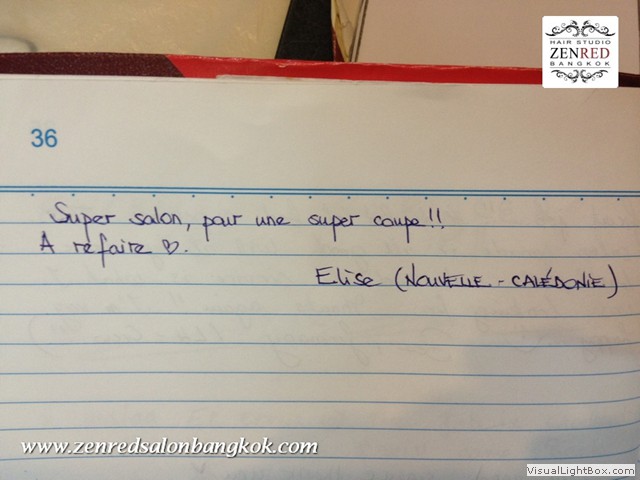 HAIR STUDIO
ZENRED
BANGKOK
36
Super salon, pour une super coupe!!
A refaire ♡.
Elise (NOUVELLE - CALÉDONIE)
www.zenredsalonbangkok.com
VisualLightBox.com